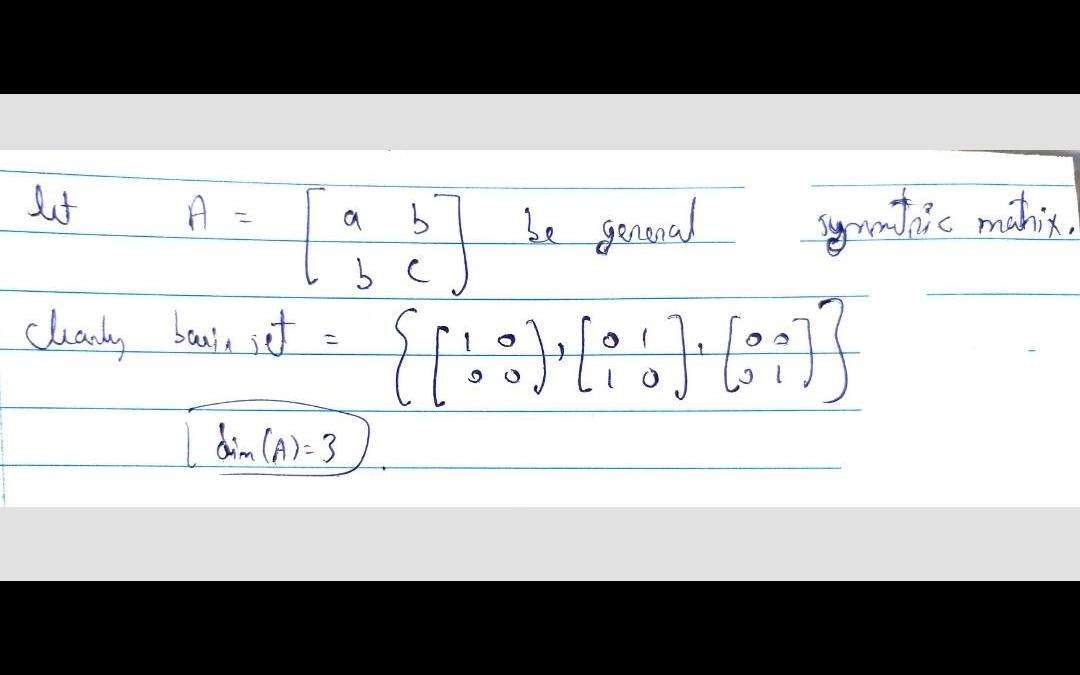 let A = [a b b c] be general symmetric matrix.
Clearly basis set = {[1 0 0 0], [0 1 1 0], [0 0 0 1]}
dim(A)=3.